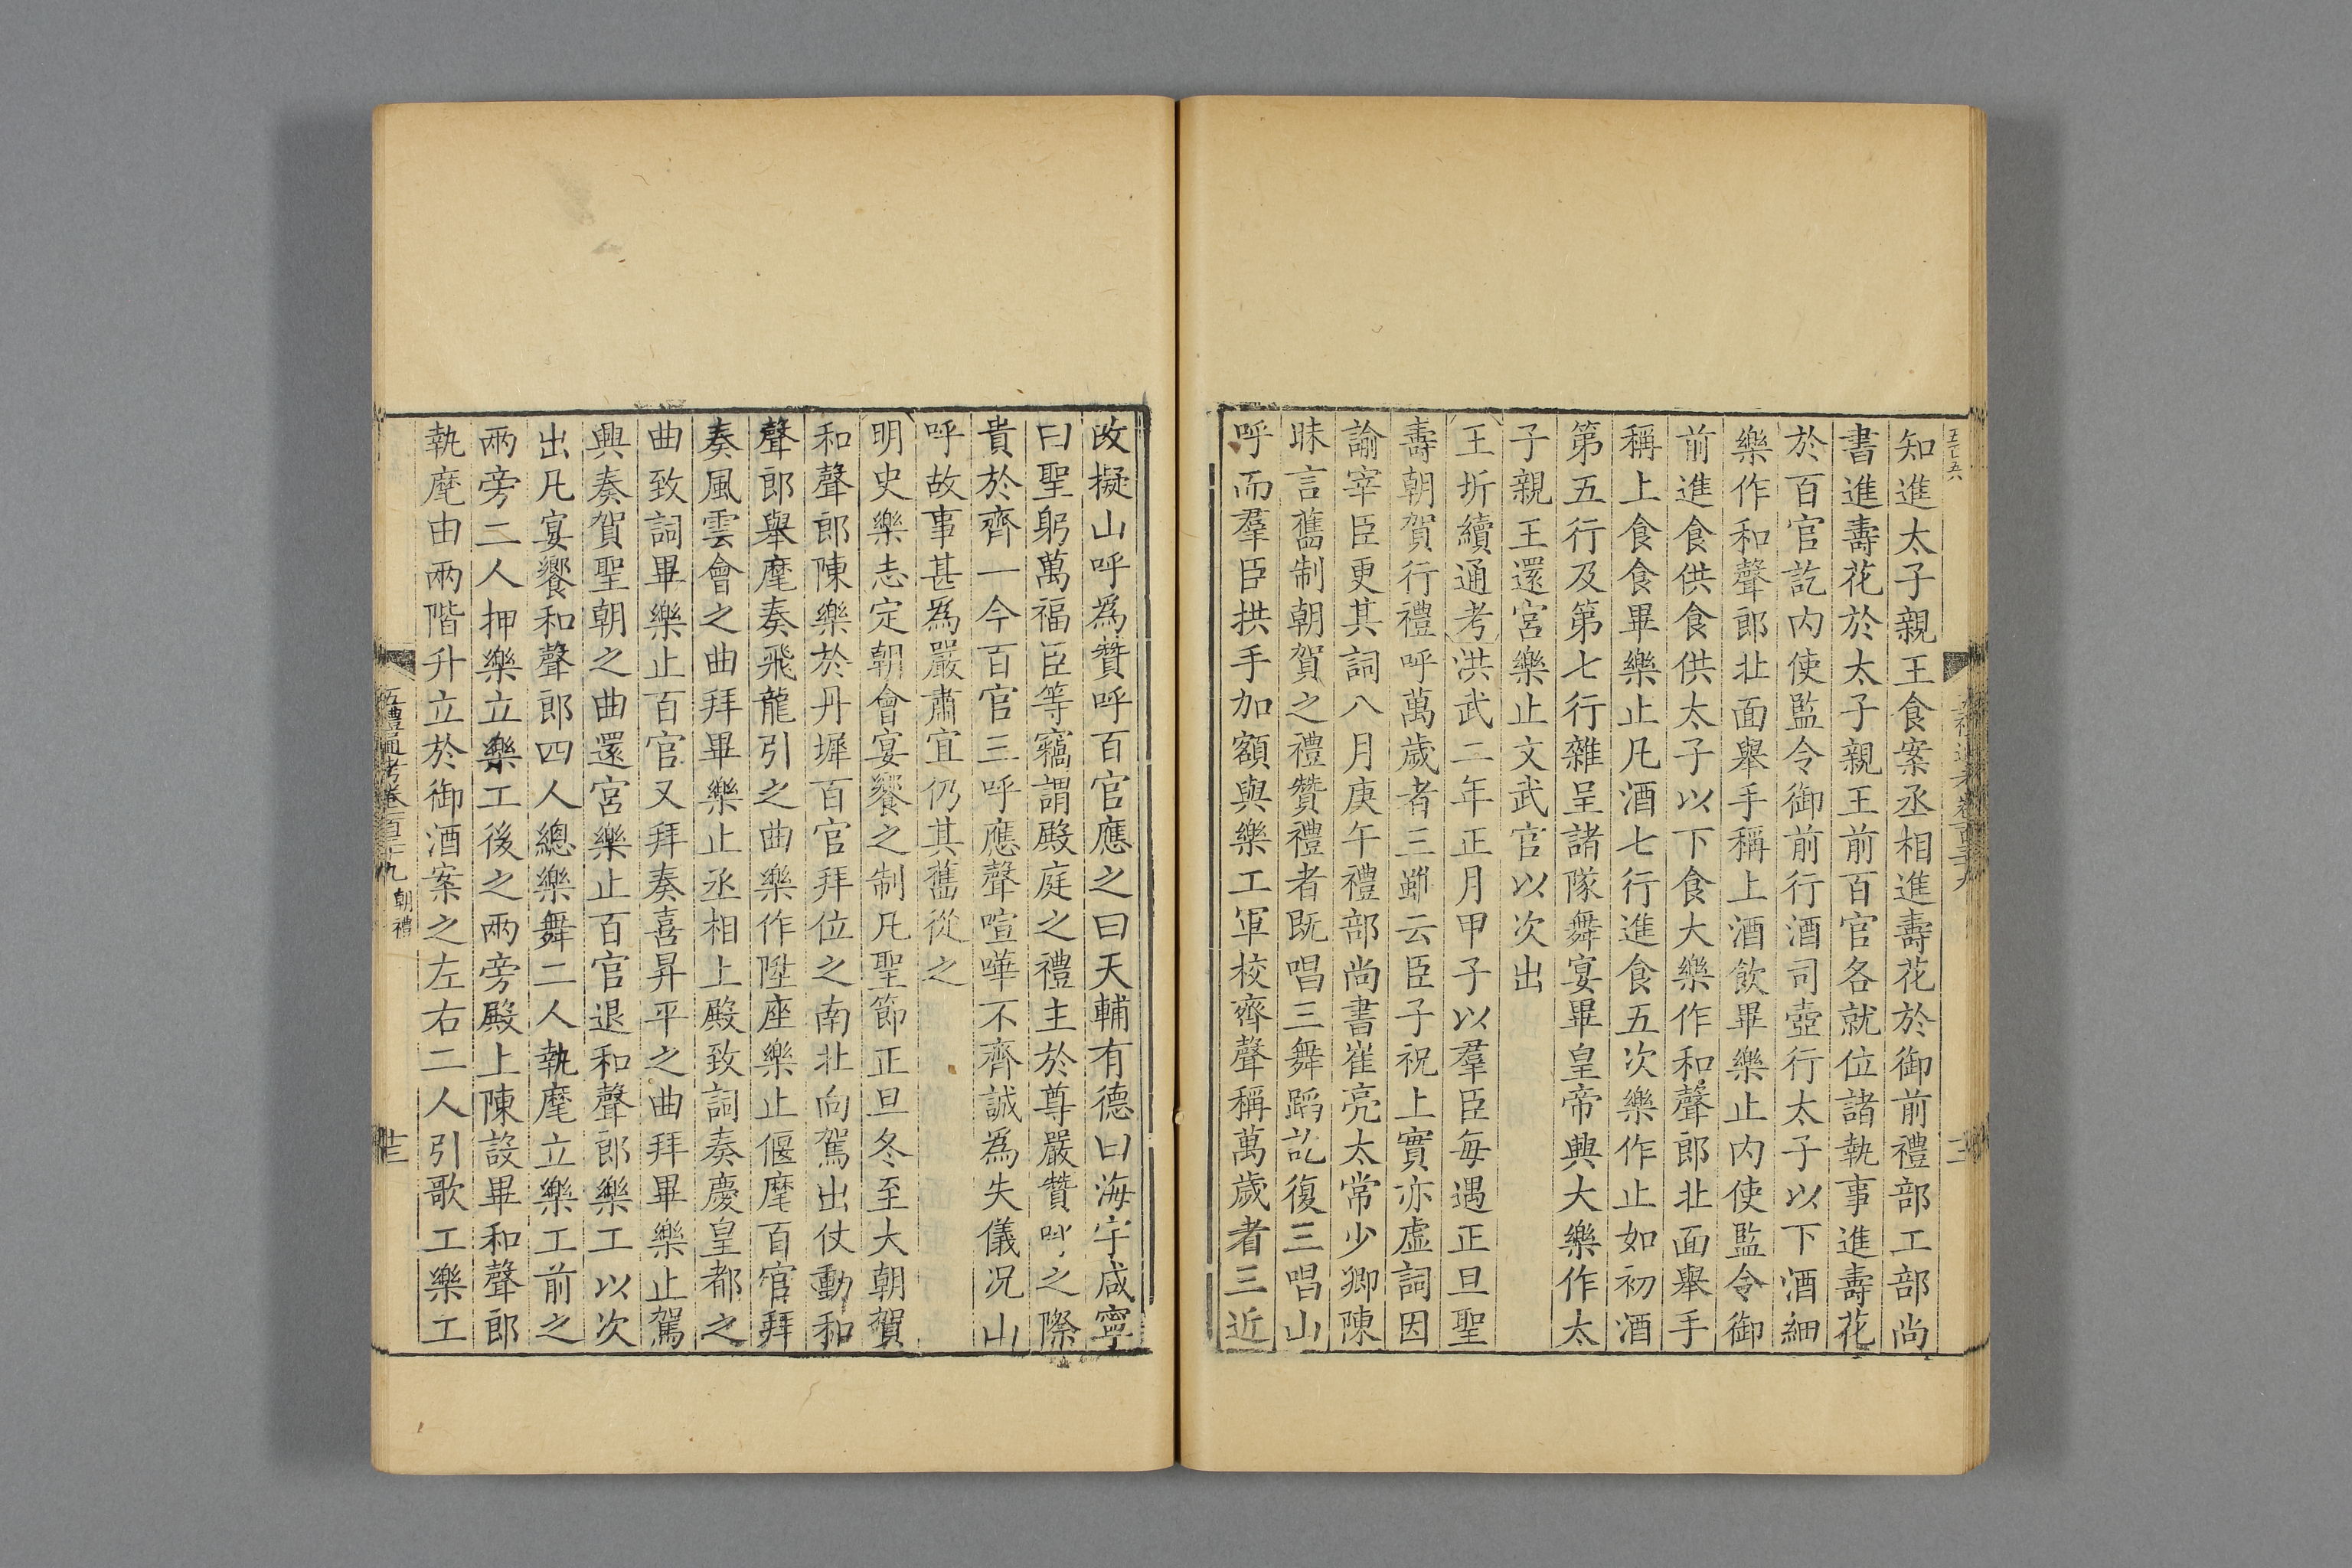 知進太子親王食案丞相進壽花於御前禮部工部尚
書進壽花於太子親王前百官各就位諸執事進壽花
於百官訖内使監令御前行酒司壺行太子以下酒細
樂作和聲郎北面舉手稱上酒飲畢樂止内使監令御
前進食供食供太子以下食大樂作和聲郎北面舉手
稱上食食畢樂止凡酒七行進食五次樂作止如初酒
第五行及第七行雜呈諸隊舞宴畢皇帝興大樂作太
子親王還宮樂止文武官以次出
王圻續通考洪武二年正月甲子以羣臣每遇正旦聖
壽朝賀行禮呼萬歲者三鄞云臣子祝上實亦虛詞因
諭宰臣更其詞八月庚午禮部尚書崔亮太常少卿陳
昧言舊制朝賀之禮贊禮者既唱三舞蹈訖復三唱山
呼而羣臣拱手加額與樂工軍校齊聲稱萬歲者三近
改擬山呼爲贊呼百官應之曰天輔有德曰海宇咸寧
曰聖躬萬福臣等竊謂殿庭之禮主於尊嚴贊呼之際
貴於齊一今百官三呼應聲喧嘩不齊誠爲失儀况山
呼故事甚爲嚴肅宜仍其舊從之
明史樂志定朝會宴饗之制凡聖節正旦冬至大朝賀
和聲郎陳樂於丹墀百官拜位之南北向駕出仗動和
聲郎舉麾奏飛龍引之曲樂作陞座樂止偃麾百官拜
奏風雲會之曲拜畢樂止丞相上殿致詞奏慶皇都之
曲致詞畢樂止百官又拜奏喜昇平之曲拜畢樂止駕
興奏賀聖朝之曲還宮樂止百官退和聲郎樂工以次
出凡宴饗和聲郎四人總樂舞二人執麾立樂工前之
兩旁二人押樂立樂工後之兩旁殿上陳設畢和聲郎
執麾由兩階升立於御酒案之左右二人引歌工樂工
五禮通考卷一百三十九 朝禮